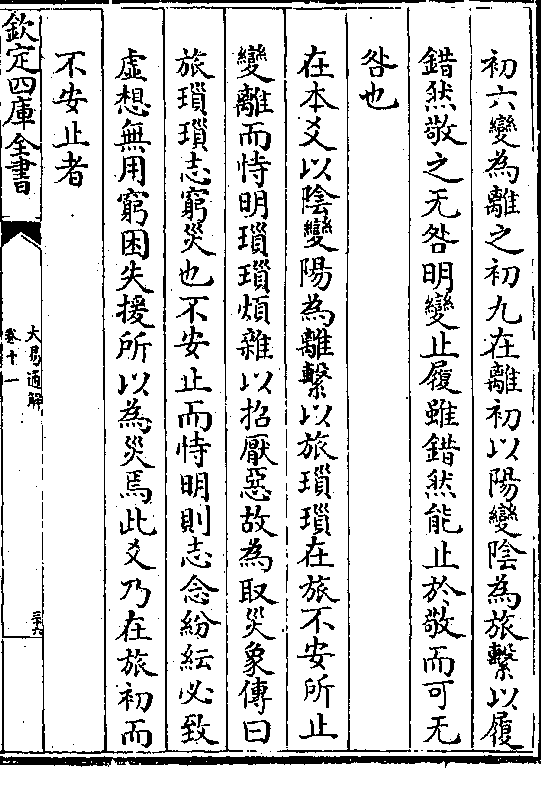 初六變為離之初九在離初以陽變陰為旅繫以履
錯然敬之无咎明變止履雖錯然能止於敬而可无
咎也
在本爻以陰變陽為離繫以旅瑣瑣在旅不安所止
變離而恃明瑣瑣煩雜以招厭惡故為取災象傳曰
旅瑣瑣志窮災也不安止而恃明則志念紛紜必致
虛想無用窮困失援所以為災焉此爻乃在旅初而
不安止者
欽定四庫全書
大易通解
卷十一
三十六